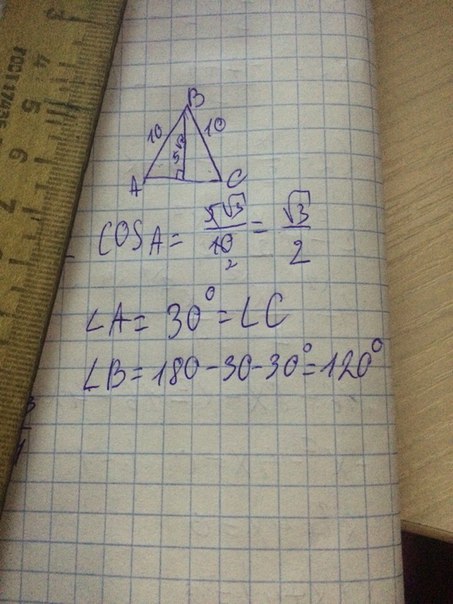 B
10
10
5√3
A
C
COS A = 5√3/10 2 = √3/2
∠A = 30° = ∠C
∠B = 180 - 30 - 30° = 120°
3
4
5
6
7